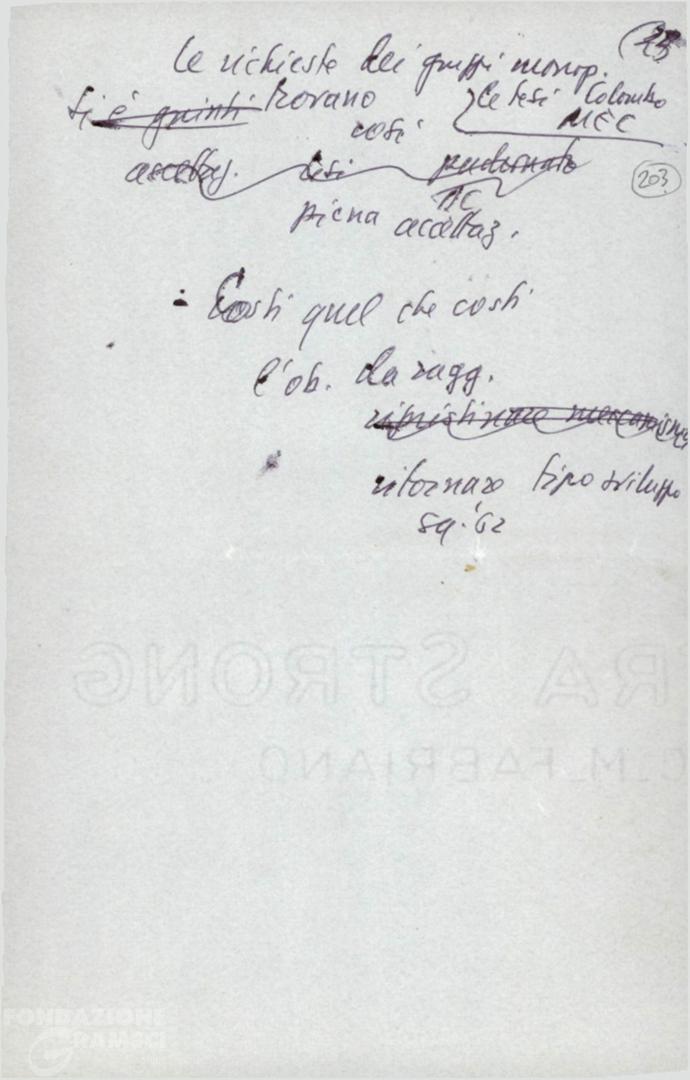 23
Le richieste dei gruppi monop.
Si è quinti trovano le tesi Colombo
così MEC
accettaz. tesi
203
piena accettaz.
- Costi quel che costi
l'ob. da ragg.
ripristinare meccanismo
ritornare tipo sviluppo
59-'62
RA STRONG
C.M. FABRIANO
FONDAZIONE
GRAMSCI